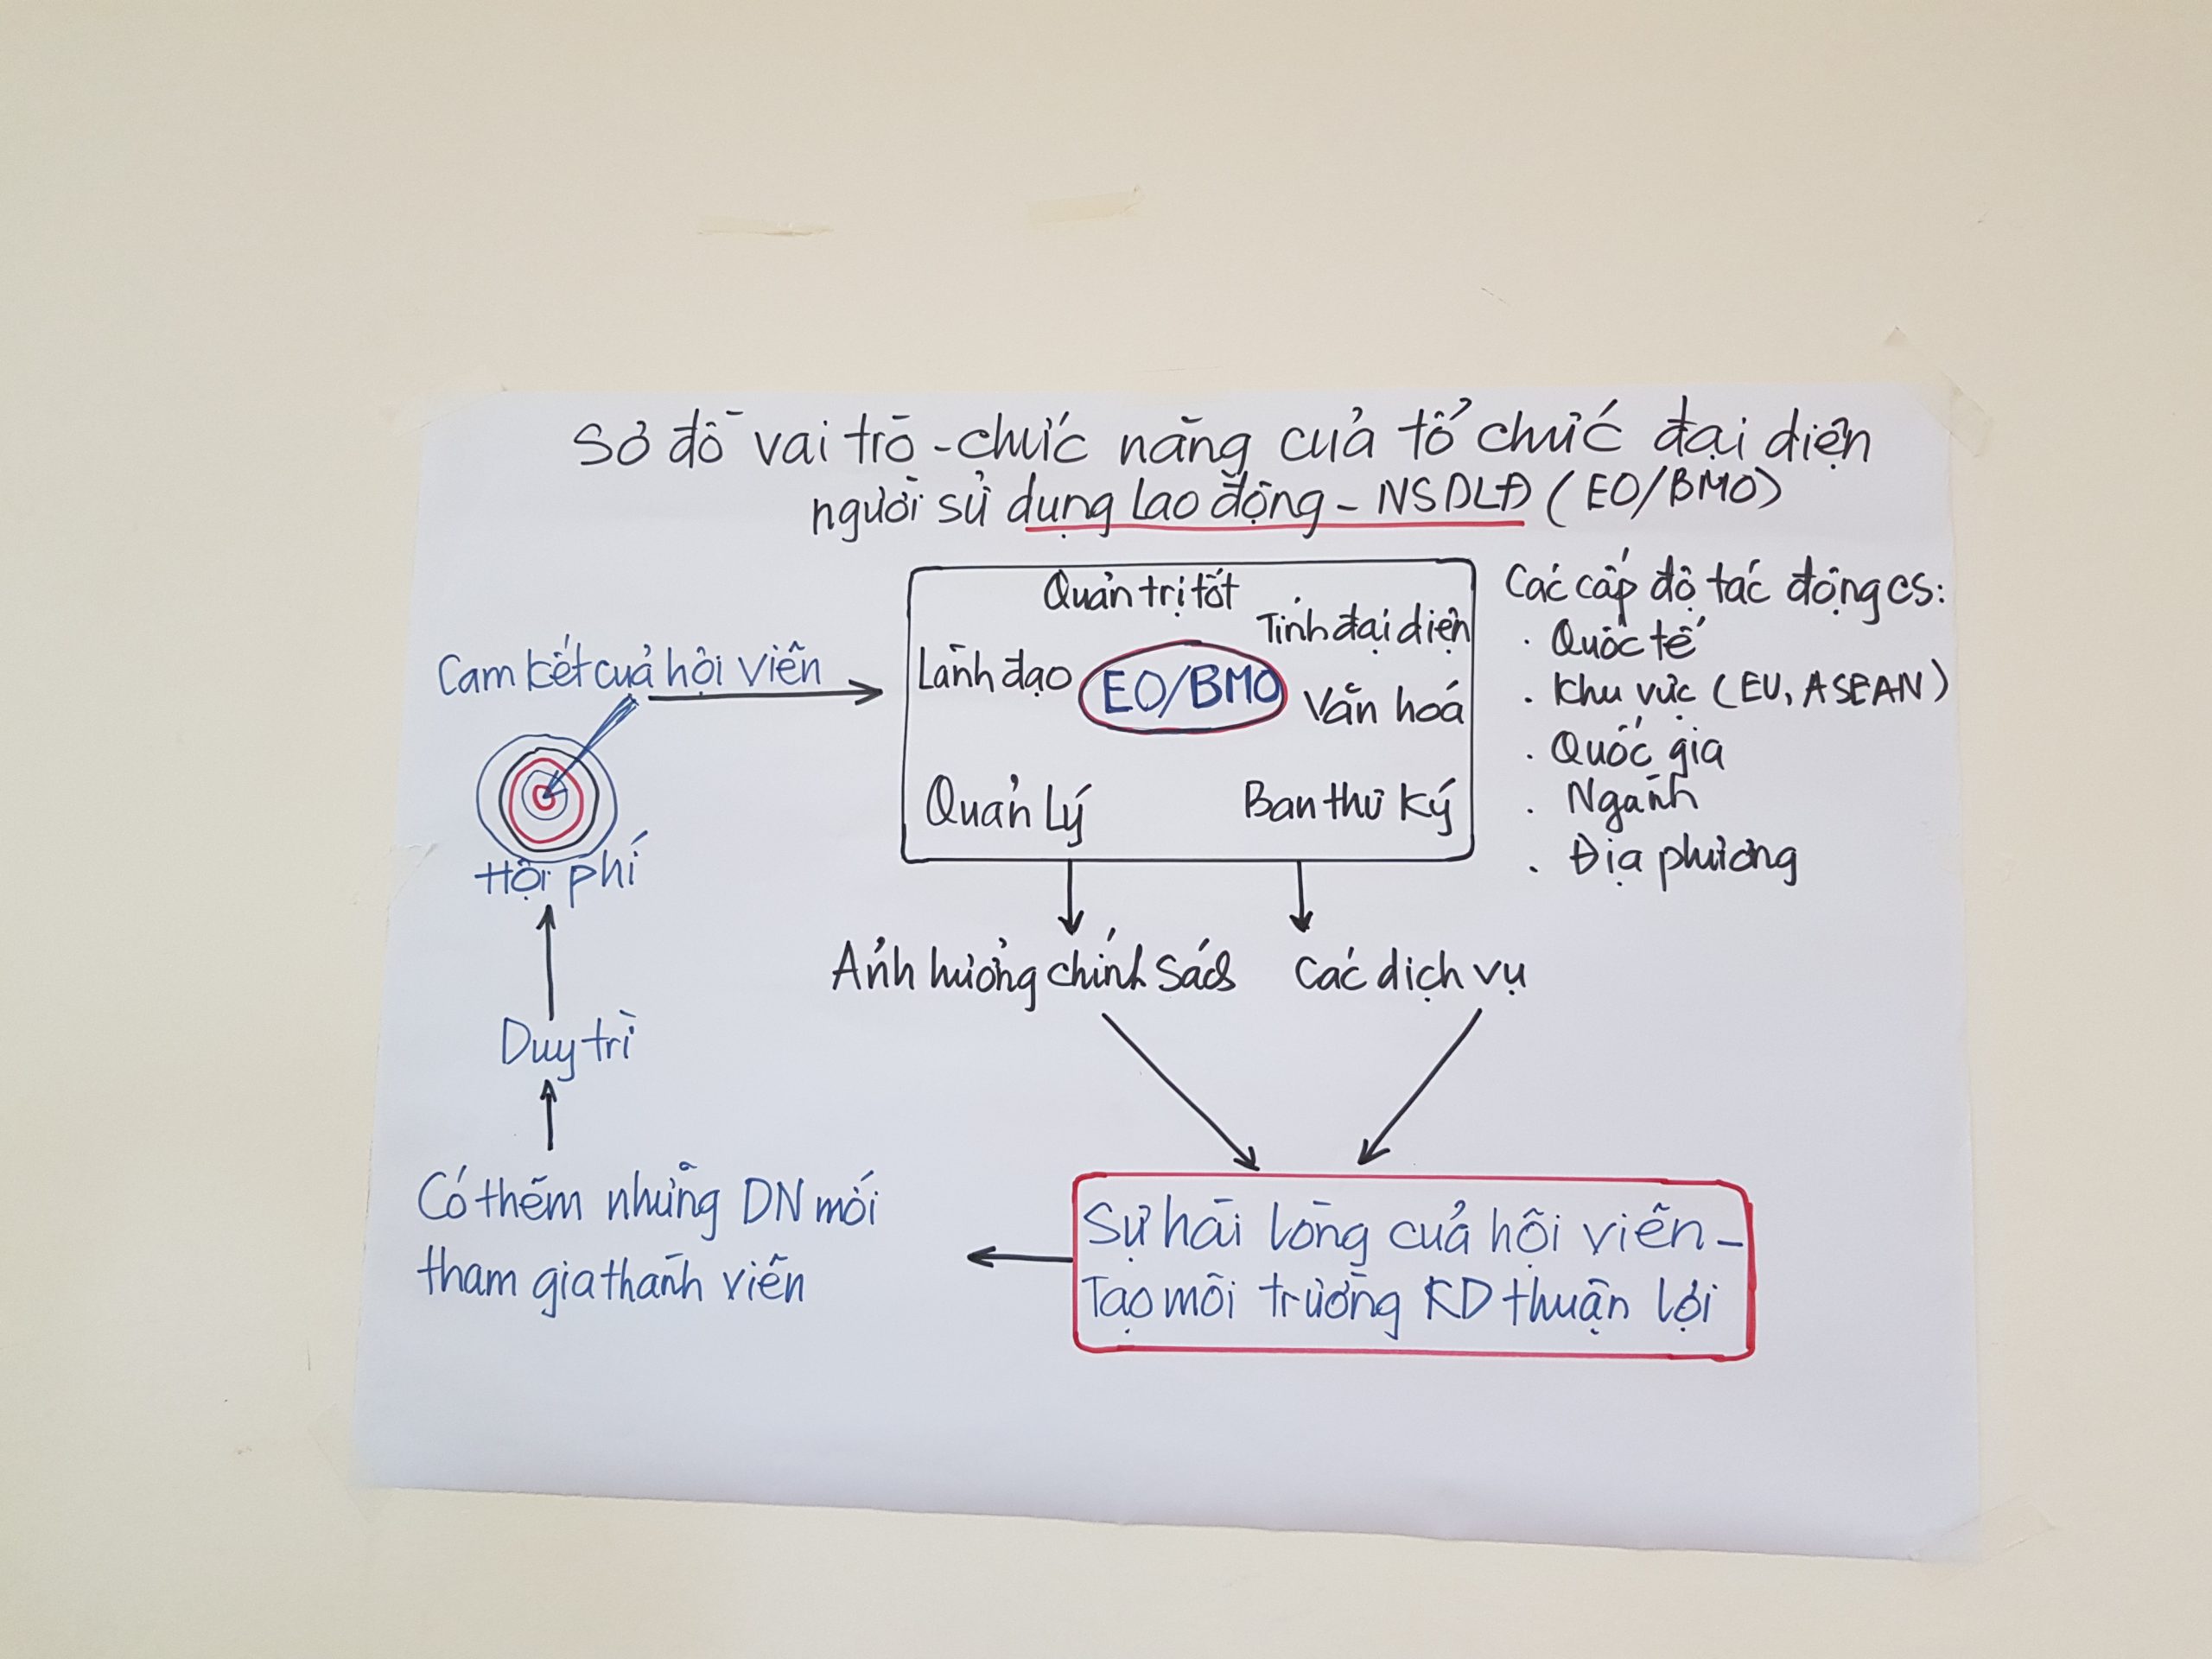 Sơ đồ vai trò - chức năng của tổ chức đại diện
người sử dụng lao động - NSDLĐ (EO/BMO)
Cam kết của hội viên
Hội phí
Duy trì
Có thêm những DN mới
tham gia thành viên
Quản trị tốt
Tính đại diện
Lãnh đạo
EO/BMO
Văn hoá
Quản Lý
Ban thư ký
Các cấp độ tác động CS:
. Quốc tế
. Khu vực (EU, ASEAN)
. Quốc gia
. Ngành
. Địa phương
Ảnh hưởng chính sách
Các dịch vụ
Sự hài lòng của hội viên -
Tạo môi trường KD thuận lợi